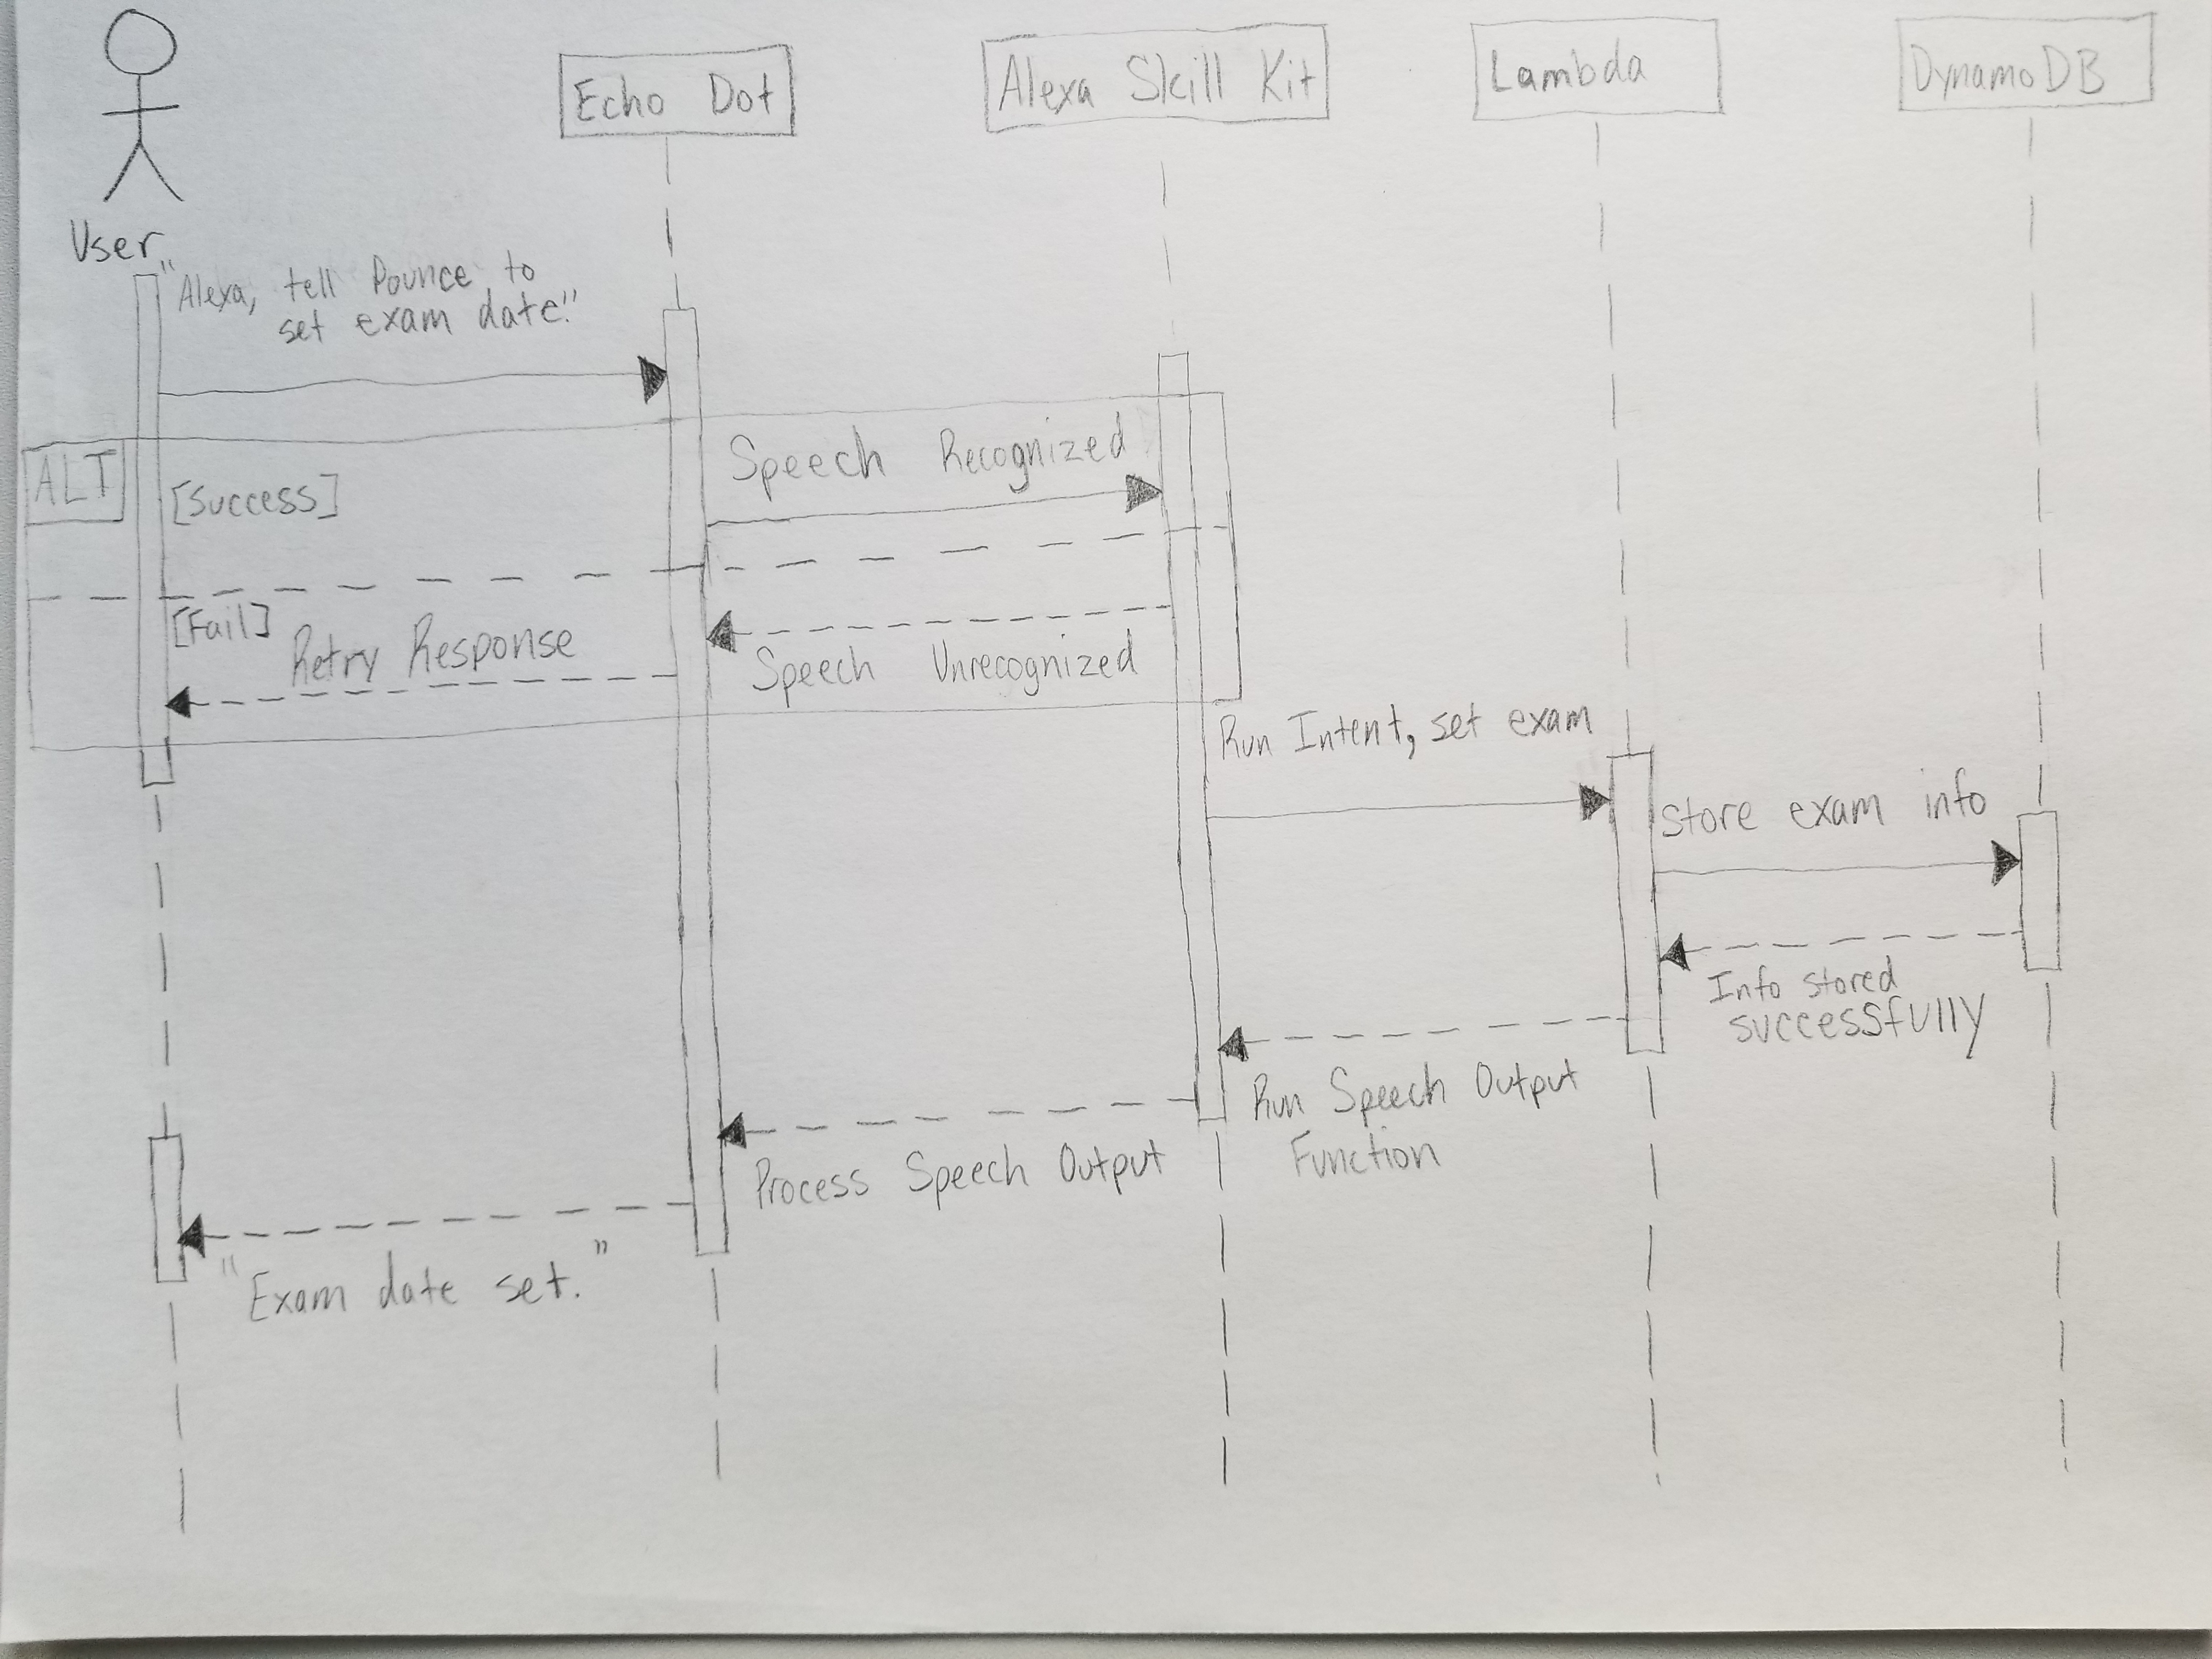 Echo Dot
Alexa Skill Kit
Lambda
DynamoDB
User
"Alexa, tell Pounce to
set exam date."
ALT
[Success]
Speech Recognized
[Fail]
Retry Response
Speech Unrecognized
Run Intent, set exam
store exam info
Info stored
successfully
Run Speech Output
Function
Process Speech Output
"Exam date set."